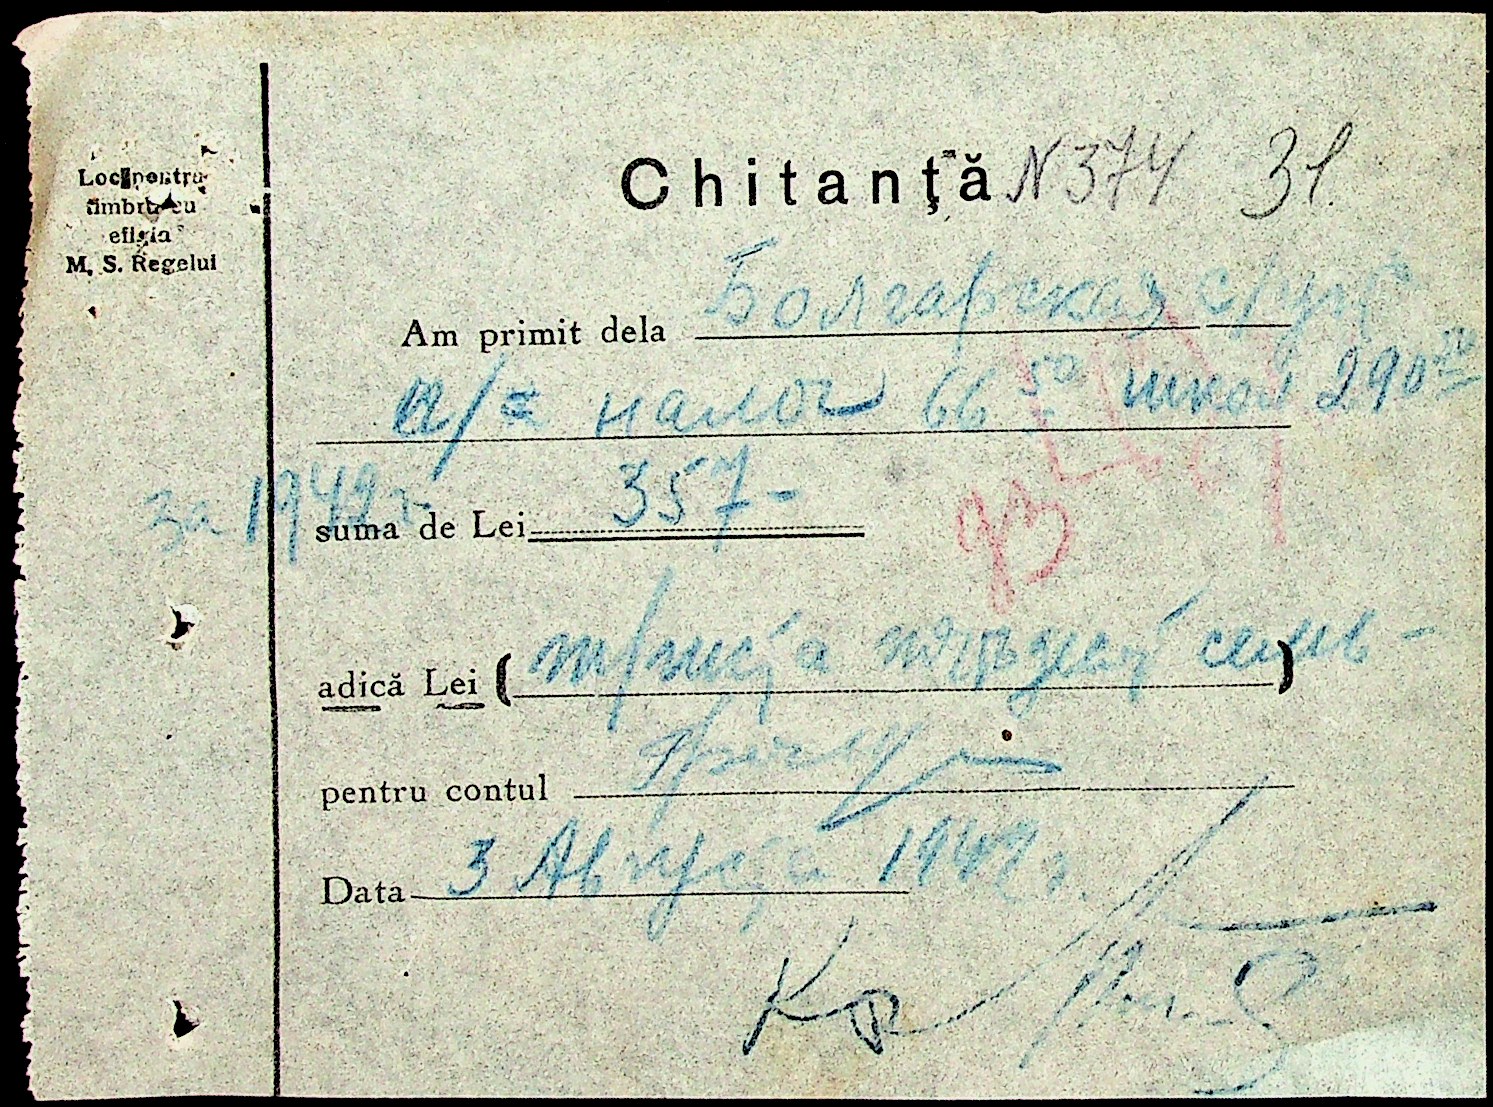 Loc pentru
timbru cu
efigia
M. S. Regelui
Chitanţă N 374 31
Am primit dela Болгарская
налог 66 50 школ 290 50
за 1942 г.
suma de Lei 357-
93
adică Lei ( триста пятьдесят семь - )
pentru contul
Data 3 Августа 1942 г.